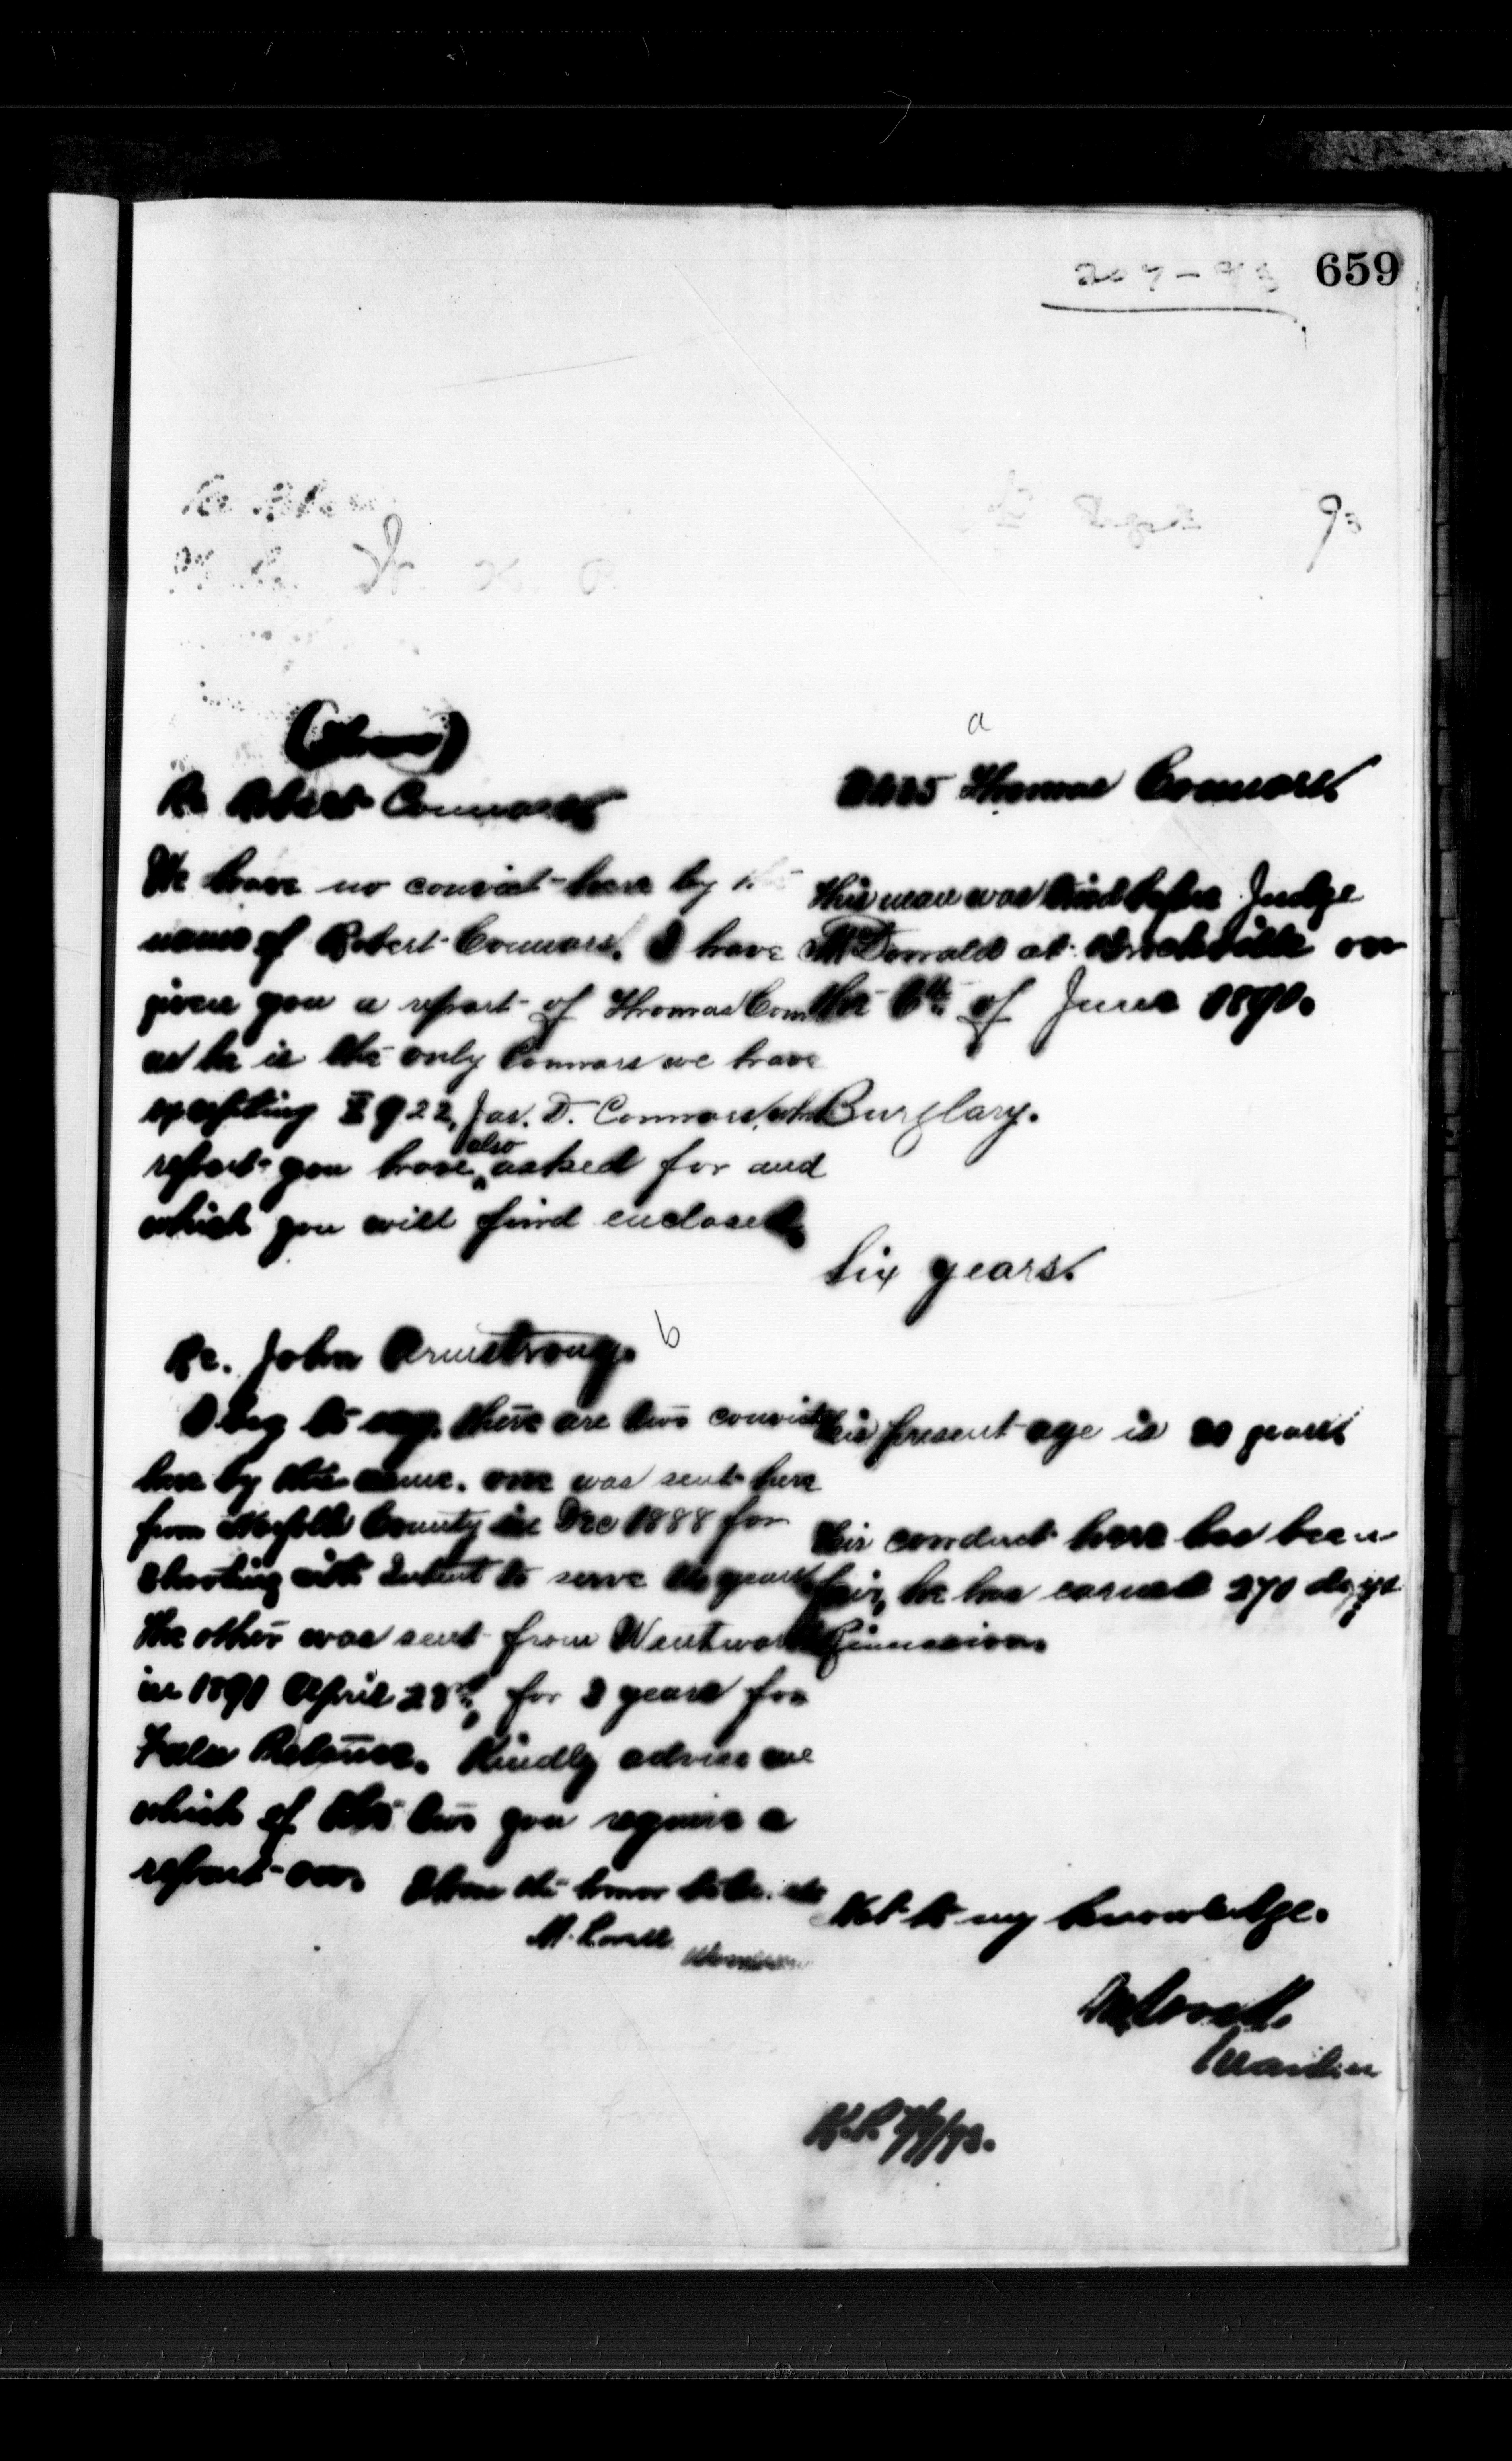 659
207-93
93
Re Robert Connors
We have no convict here by the
name of Robert Connors. I have
given you a report of Thomas Conn
as he is the only Connors we have
excepting E 922, Jas. D. Connors, whose
report you have also asked for and
which you will find enclosed.
b
Re. John Armstrong.
I beg to say, there are two convicts
here by this name. one was sent here
from Norfolk County in Dec 1888 for
Shooting with Intent to serve years
The other was sent from Wentworth
in 1891 April 28th, for 3 years for
False Pretence. Kindly advise me
which of the two you require a
report on. I have the honor to be. etc
M. Lavell
Warden
a
Thomas Connors.
This man was tried before Judge
McDonald at Brockville on
the 6th of June 1890.
Burglary.
Six years.
His present age is 20 years
His conduct here has been
fair, he has earned 270 days
Remission.
Not to my knowledge.
M. Lavell.
Warden
K.P. 7/9/93.